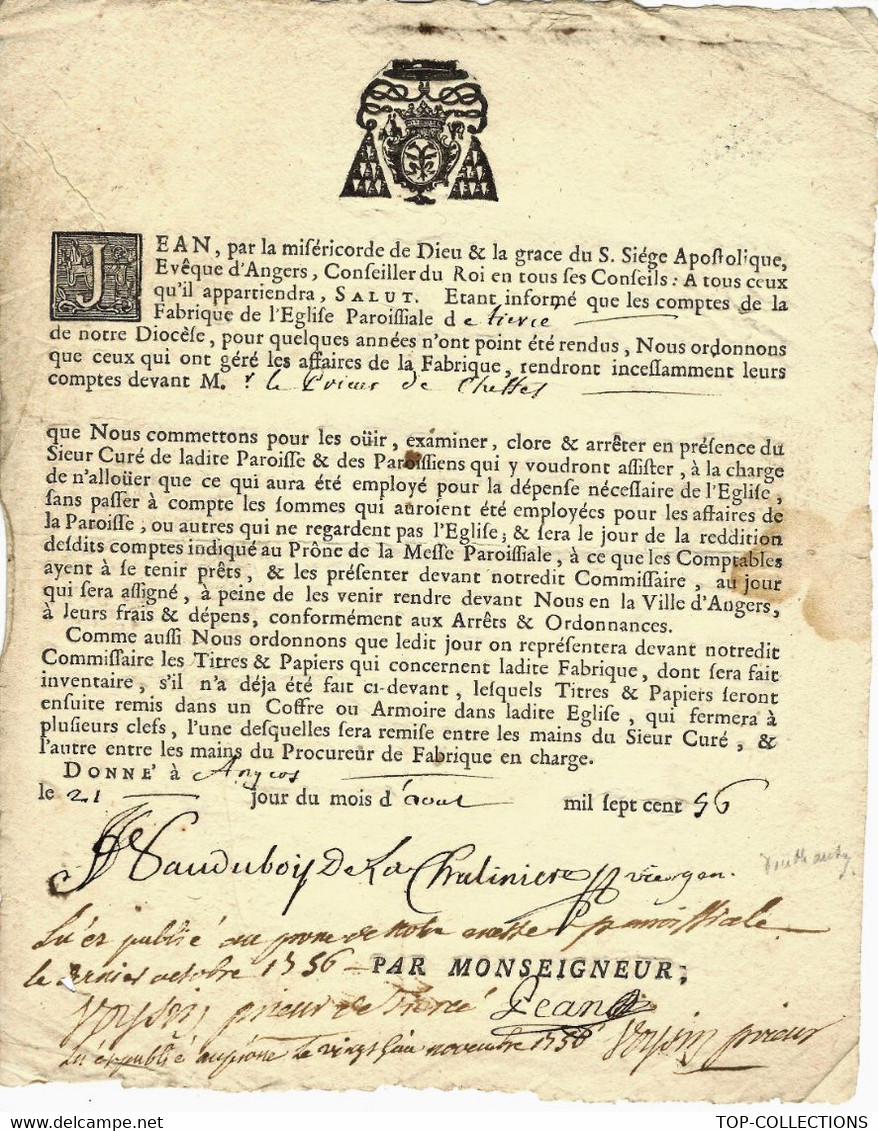 JEAN, par la miséricorde de Dieu & la grace du S. Siége Apostolique,
Evêque d'Angers, Conseiller du Roi en tous ses Conseils : A tous ceux
qu'il appartiendra, SALUT. Etant informé que les comptes de la
Fabrique de l'Eglise Paroissiale de tiercé
de notre Diocèse, pour quelques années n'ont point été rendus, Nous ordonnons
que ceux qui ont géré les affaires de la Fabrique, rendront incessamment leurs
comptes devant M.r le Prieur de Cheffes
que Nous commettons pour les oüir, examiner, clore & arrêter en présence du
Sieur Curé de ladite Paroisse & des Paroissiens qui y voudront assister, à la charge
de n'alloüer que ce qui aura été employé pour la dépense nécessaire de l'Eglise,
sans passer à compte les sommes qui auroient été employées pour les affaires de
la Paroisse, ou autres qui ne regardent pas l'Eglise ; & sera le jour de la reddition
desdits comptes indiqué au Prône de la Messe Paroissiale, à ce que les Comptables
ayent à se tenir prêts, & les présenter devant notredit Commissaire, au jour
qui sera assigné, à peine de les venir rendre devant Nous en la Ville d'Angers,
à leurs frais & dépens, conformément aux Arrêts & Ordonnances.
Comme aussi Nous ordonnons que ledit jour on représentera devant notredit
Commissaire les Titres & Papiers qui concernent ladite Fabrique, dont sera fait
inventaire, s'il n'a déja été fait ci-devant, lesquels Titres & Papiers seront
ensuite remis dans un Coffre ou Armoire dans ladite Eglise, qui fermera à
plusieurs clefs, l'une desquelles sera remise entre les mains du Sieur Curé, &
l'autre entre les mains du Procureur de Fabrique en charge.
DONNÉ à Angers
le 21 jour du mois d'aout mil sept cent 56
Vauduboy De La Chaliniere vic. gen.
Lu et publié au prone de notre messe paroissiale
le dernier octobre 1756 PAR MONSEIGNEUR,
Voysin prieur de Tiercé Jean
Lu et publié au prone le vingt novembre 1756 Voysin prieur
TOP-COLLECTIONS